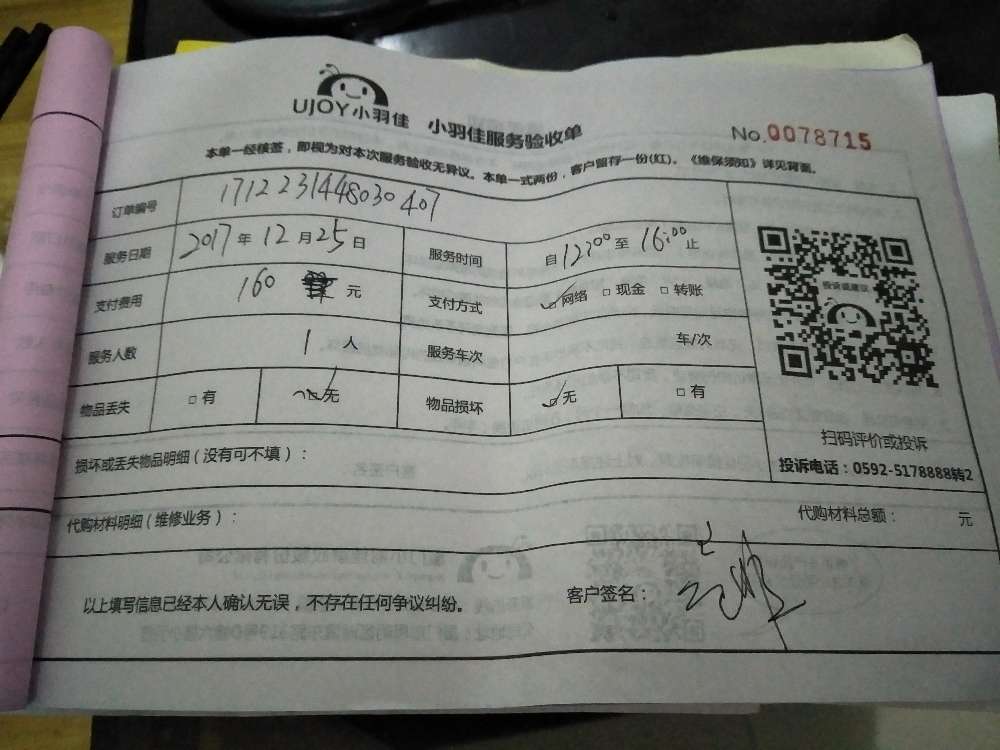 UJOY小羽佳 小羽佳服务验收单
No.0078715
本单一经核签，即视为对本次服务验收无异议。本单一式两份，客户留存一份(红)。《维保须知》详见背面。
订单编号 1712231448030407
服务日期 2017年12月25日 服务时间 自12:00至16:00止
支付费用 160 元 支付方式 网络 现金 转账
服务人数 1人 服务车次 车/次
物品丢失 有 无 物品损坏 无 有
投诉或建议
扫码评价或投诉
投诉电话：0592-5178888转2
损坏或丢失物品明细（没有可不填）：
代购材料明细（维修业务）： 代购材料总额： 元
以上填写信息已经本人确认无误，不存在任何争议纠纷。 客户签名：